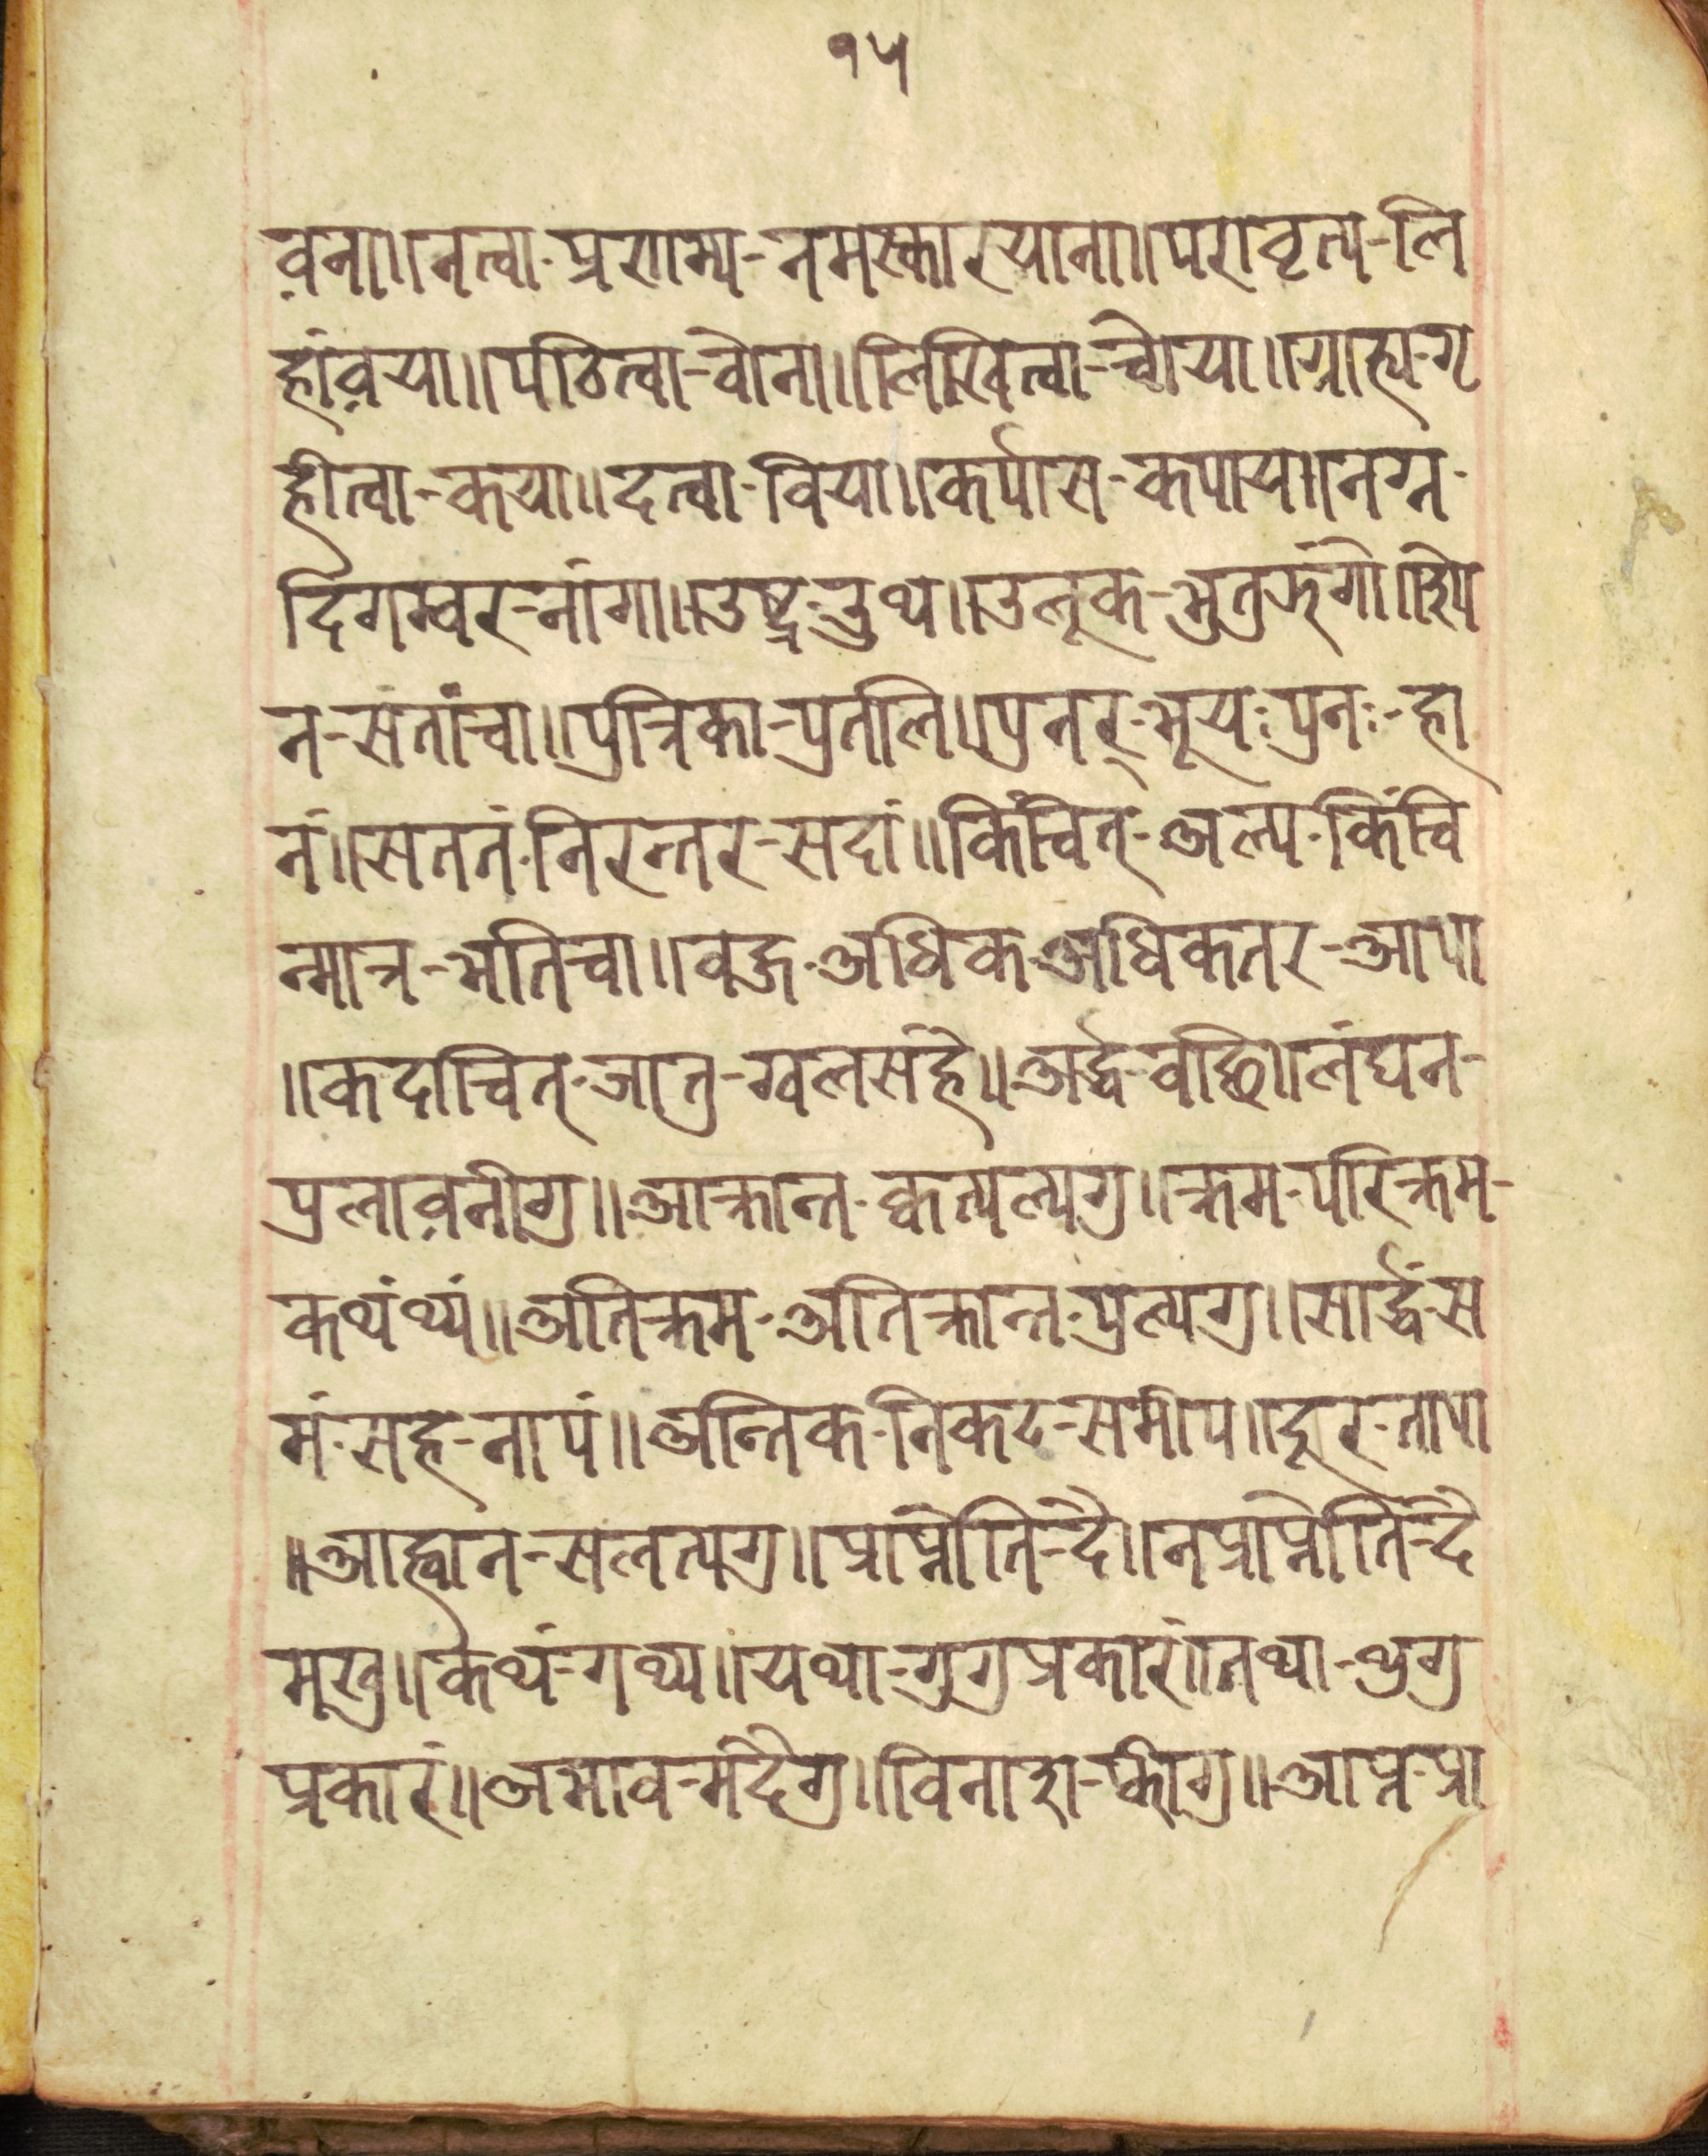 १५
व़ना॥नत्वा-प्रणम्य-नमस्कारयाना॥परावृत्य-लि
हांव़या॥पठित्वा-वोना॥लिखित्वा-च्वोया॥ग्राह्य-गृ
हीत्वा-कया॥दत्वा-विया॥कर्पास-कपाय॥नग्न-
दिगम्वर-नांगा॥उष्ट्र-नुथ॥उलूक-भुतुरुंगो॥
न-संतांचा॥पुत्रिका-पुतलि॥पुनर्-भूयः पुनः-हा
नं॥सततं-निरन्तर-सदां॥किंचित्-अल्प-किंचि
न्मात्र-भतिचा॥वहु-अधिक-अधिकतर-आपा
॥कदाचित्-जातु-ग्वलसंहे॥अर्द्ध-वछि॥लंघन-
पुलाव़नीगु॥आक्रान्त-क्वत्यल्यगु॥क्रम-परिक्रम-
कथंथ्यं॥अतिक्रम-अतिक्रान्त-पुल्यगु॥सार्द्धं-स
मं-सह-नापं॥अन्तिक-निकट-समीप॥दूर-तापा
॥आह्वान-सलत्यगु॥प्राप्नोति-दै॥नप्राप्नोति-दै
मखु॥कथं-गथ्य॥यथा-गुगुप्रकारं॥तथा-थुगु
प्रकारं॥अभाव-मंदैगु॥विनाश-फ्वीगु॥आप्न-प्रा